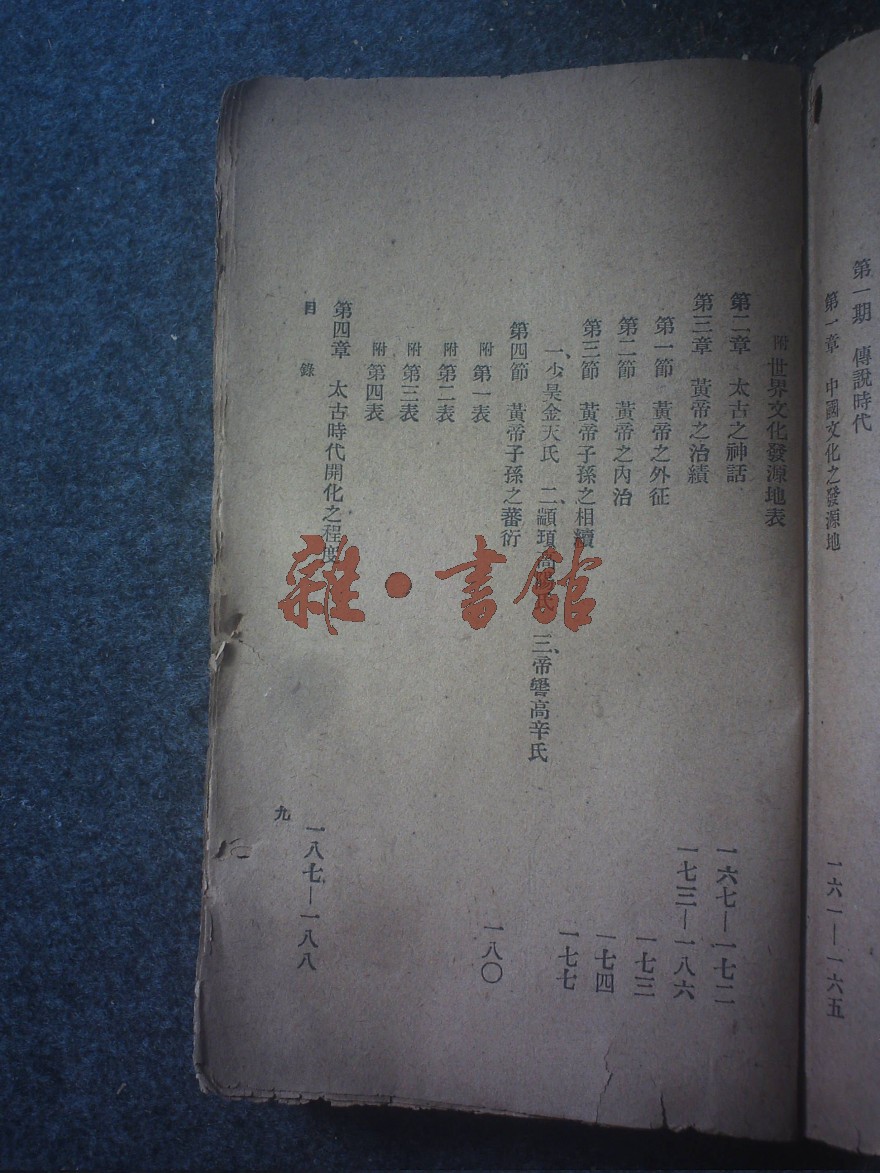 第一期 傳說時代
第一章 中國文化之發源地 一六一—一六五
附 世界文化發源地表
第二章 太古之神話 一六七—一七二
第三章 黃帝之治績 一七三—一八六
第一節 黃帝之外征 一七三
第二節 黃帝之內治 一七四
第三節 黃帝子孫之相續 一七七
一、少昊金天氏 二、顓頊高陽氏 三、帝嚳高辛氏
第四節 黃帝子孫之蕃衍 一八〇
附 第一表
附 第二表
附 第三表
附 第四表
第四章 太古時代開化之程度 一八七—一八八
目錄 九
雜·書館